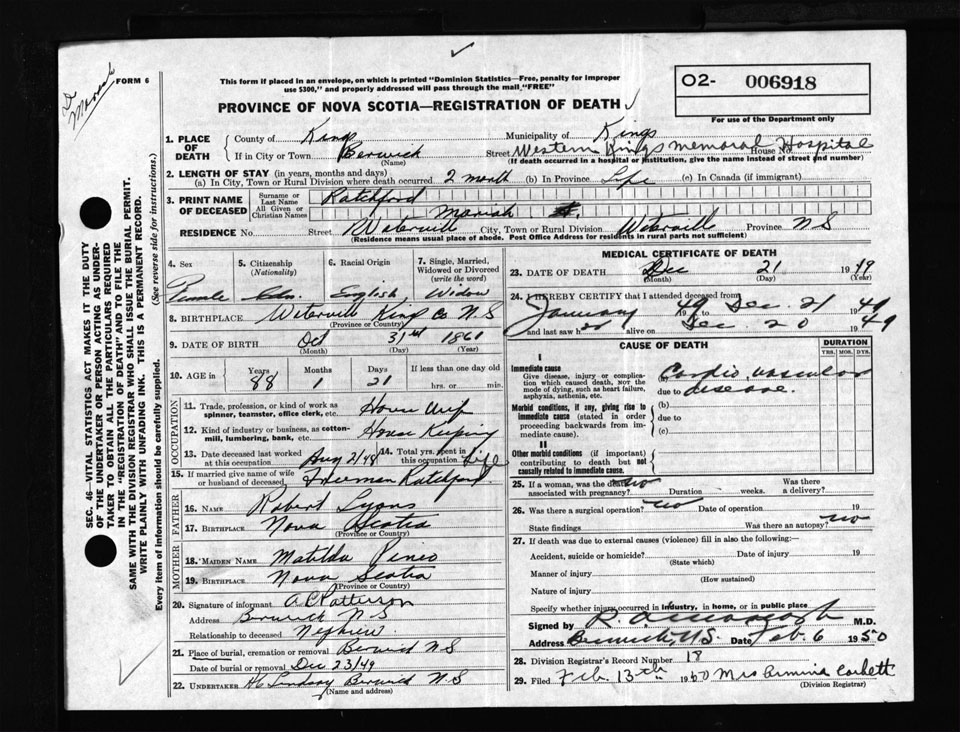 FORM 6
This form if placed in an envelope, on which is printed "Dominion Statistics—Free, penalty for improper
use $300," and properly addressed will pass through the mail "FREE"
PROVINCE OF NOVA SCOTIA—REGISTRATION OF DEATH
O2- 006918
For use of the Department only
SEC. 46—VITAL STATISTICS ACT MAKES IT THE DUTY
OF THE UNDERTAKER OR PERSON ACTING AS UNDER-
TAKER TO OBTAIN ALL THE PARTICULARS REQUIRED
IN THE "REGISTRATION OF DEATH" AND TO FILE THE
SAME WITH THE DIVISION REGISTRAR WHO SHALL ISSUE THE BURIAL PERMIT.
WRITE PLAINLY WITH UNFADING INK. THIS IS A PERMANENT RECORD.
Every item of information should be carefully supplied. (See reverse side for instructions.)
1. PLACE OF DEATH
County of Kings Municipality of Kings
If in City or Town Berwick Street Western Kings Memorial Hospital House No.
(Name) (If death occurred in a hospital or institution, give the name instead of street and number)
2. LENGTH OF STAY (in years, months and days)
(a) In City, Town or Rural Division where death occurred 2 month (b) In Province Life (c) In Canada (if immigrant)
3. PRINT NAME OF DECEASED
Surname or Last Name Ratchford
All Given or Christian Names Mariah
RESIDENCE No. Street R Waterville City, Town or Rural Division Waterville Province N S
(Residence means usual place of abode. Post Office Address for residents in rural parts not sufficient)
4. Sex Female
5. Citizenship (Nationality) Cdn.
6. Racial Origin English
7. Single, Married, Widowed or Divorced (write the word) Widow
8. BIRTHPLACE Waterville Kings Co N.S
(Province or Country)
9. DATE OF BIRTH Oct 31st 1861
(Month) (Day) (Year)
10. AGE in Years 88 Months 1 Days 21 If less than one day old hrs. or min.
OCCUPATION
11. Trade, profession, or kind of work as spinner, teamster, office clerk, etc. House Wife
12. Kind of industry or business, as cotton-mill, lumbering, bank, etc. House Keeping
13. Date deceased last worked at this occupation Aug 2/48 14. Total yrs. spent in this occupation Life
15. If married give name of wife or husband of deceased Freeman Ratchford
FATHER
16. Name Robert Lyons
17. Birthplace Nova Scotia
(Province or Country)
MOTHER
18. Maiden Name Matilda Pineo
19. Birthplace Nova Scotia
(Province or Country)
20. Signature of informant A.C. Patterson
Address Berwick N.S
Relationship to deceased Nephew
21. Place of burial, cremation or removal Berwick N S
Date of burial or removal Dec 23/49
22. UNDERTAKER Lindsay Berwick N.S
(Name and address)
MEDICAL CERTIFICATE OF DEATH
23. DATE OF DEATH Dec 21 1949
(Month) (Day) (Year)
24. I HEREBY CERTIFY that I attended deceased from
January 1949 to Dec. 21 1949
and last saw h alive on Dec 20 1949
CAUSE OF DEATH
DURATION
YRS. MOS. DYS.
I
Immediate cause
Give disease, injury or complication which caused death, not the mode of dying, such as heart failure, asphyxia, asthenia, etc.
(a) Cardio vascular
due to disease.
Morbid conditions, if any, giving rise to immediate cause (stated in order proceeding backwards from immediate cause).
(b)
due to
(c)
II
Other morbid conditions (if important) contributing to death but not causally related to immediate cause.
25. If a woman, was the death associated with pregnancy? no Duration weeks. Was there a delivery?
26. Was there a surgical operation? no Date of operation 19
State findings Was there an autopsy? no
27. If death was due to external causes (violence) fill in also the following:—
Accident, suicide or homicide? Date of injury 19
(State which)
Manner of injury
(How sustained)
Nature of injury
Specify whether injury occurred in industry, in home, or in public place
Signed by M.D.
Address Berwick, N.S. Date Feb. 6 1950
28. Division Registrar's Record Number 18
29. Filed Feb. 13th 1950 Mrs Corbett
(Division Registrar)